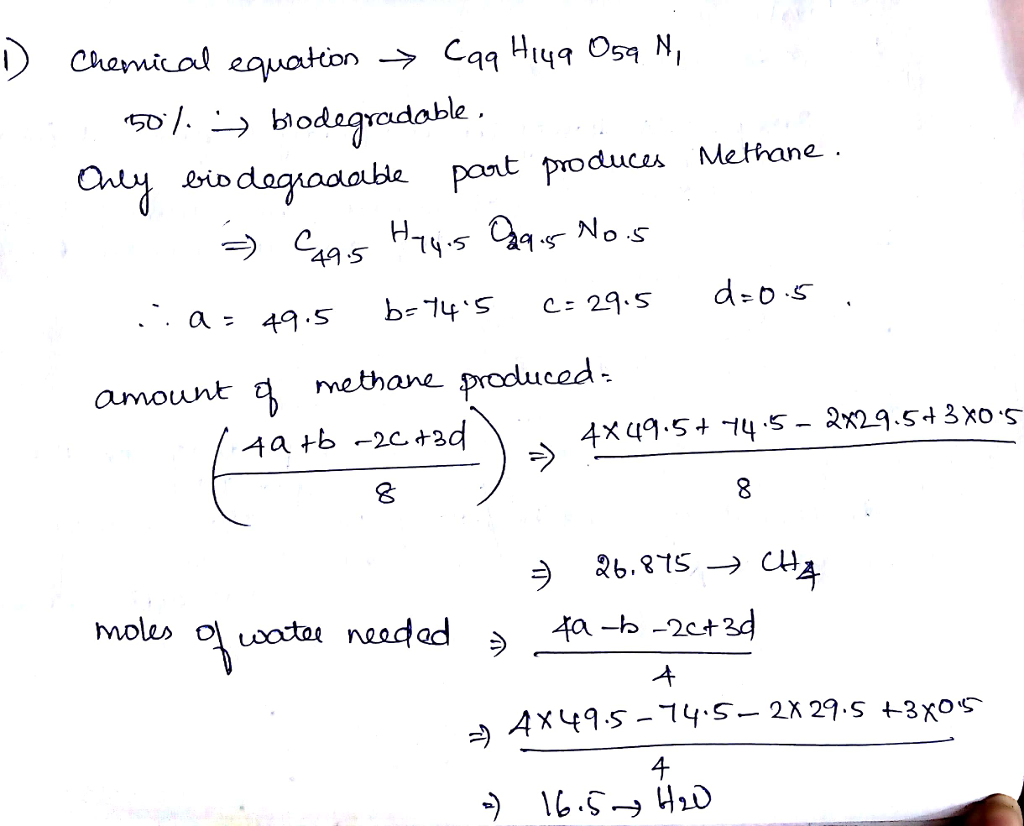 1) Chemical equation → C99 H149 O59 N1
50% → biodegradable.
Only biodegradable part produces Methane.
⇒ C49.5 H74.5 O29.5 N0.5
∴ a = 49.5 b=74.5 c=29.5 d=0.5.
amount of methane produced =
(4a+b-2c+3d / 8) ⇒ 4×49.5+74.5-2×29.5+3×0.5 / 8
⇒ 26.875 → CH4
moles of water needed ⇒ 4a-b-2c+3d / 4
⇒ 4×49.5-74.5-2×29.5+3×0.5 / 4
⇒ 16.5 → H2O